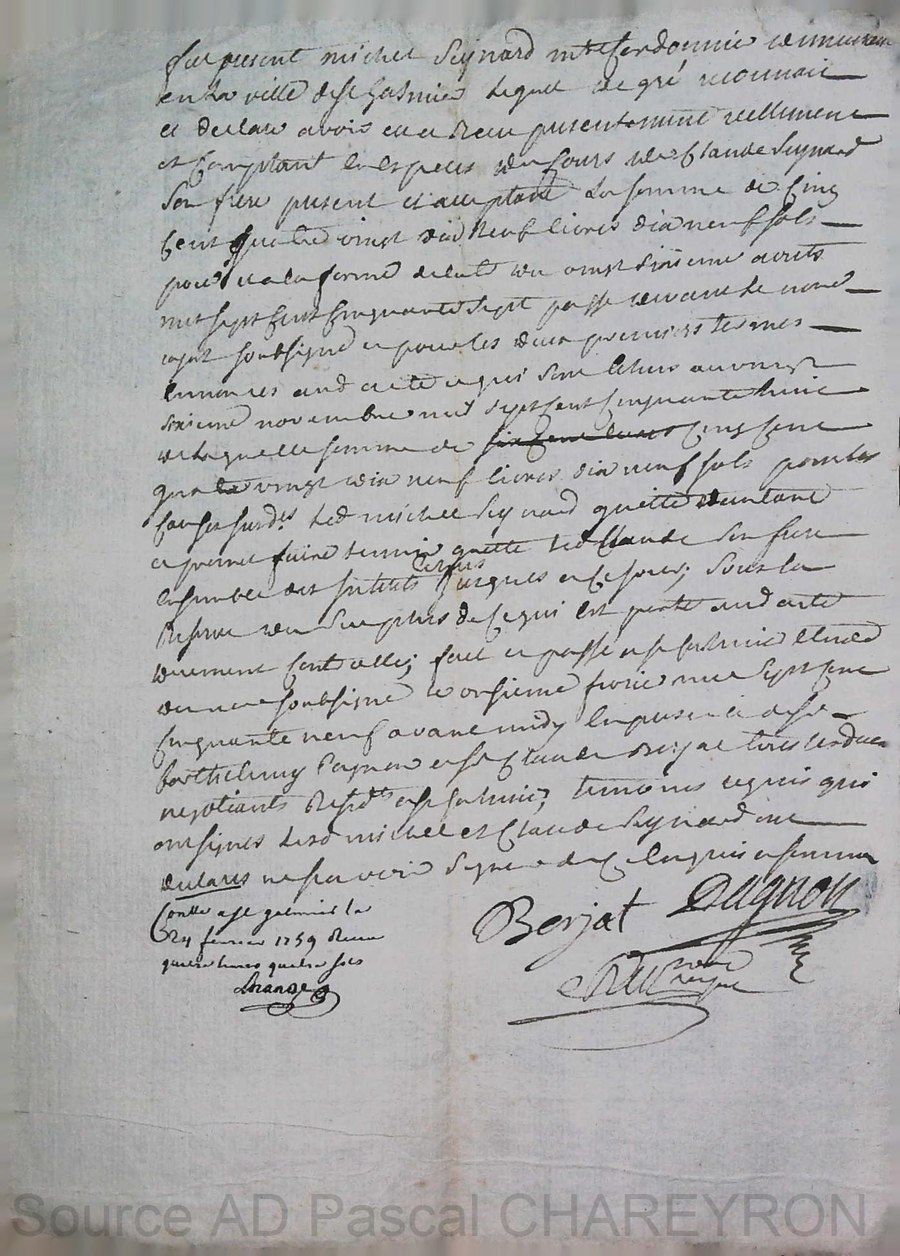 fut present michel Seynard mtre Cordonnie demeurant
en la ville de st Galmier lequel de gré reconnait
et declare avoir eu et Receu presentement reellement
et Comptant en especes du Cours de Claude Seynard
Son frere present et aceptant la somme de Cinq
Cent quatre vingt dix Neuf livres dix neuf sols
porté et a la forme de lacte du vingt sixieme
mil sept cent Cinquante Sept passé devant le nore
soubsigné et pour les deux premiers termes
enoncés aud acte et qui sont echus au vingt
sixieme novembre mil sept cent Cinquante huit
de laquelle somme de six cent livres Cinq Cent
quatre vingt dix neuf livres dix neuf sols pour les
Causes susdes led michel Seynard quitte dautant
et promet faire tenir quitte led Claude Son frere
ensemble des interets Courus jusques a Ce jour; Sous la
Reserve du Surplus de Ce qui est porté aud acte
duement Controllé; fait et passé a st Galmier etude
du nore soubsigné le onsieme fevrier mil Sept Cent
Cinquante neuf avant midy En presence de sr
barthelemy Dagnon et sr Claude Berjat tous les deux
negotiants Residts a st Galmier, temoins requis qui
ont signés lesd michel et Claude Seynard ont
declarés ne scavoir Signer de Ce Enquis et sommés
Conllé a st galmier le
24 fevrier 1759 Receu
quatre livres quatre sols
Berjat Dagnon
Source AD Pascal CHAREYRON